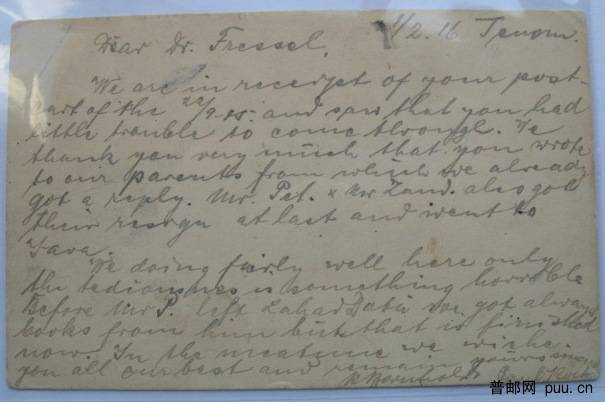 1/2.16 Tenom.
Dear Dr. Fressel,
We are in receipt of your post-
cart of the 22/9.15. and saw that you had
little trouble to come through. We
thank you very much that you wrote
to our parents from which we already
got a reply. Mr. Pet. & Mr Zand. also got
their resign at last and went to
Java.
We doing fairly well here only
the tediousness is something horrible
Before Mr P. left Lahad Datu we got always
books from him but that is finished
now. In the meatime we wishe
you all our best and remain yours
普邮网 puu.cn